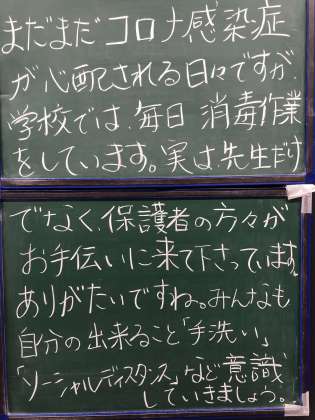 まだまだコロナ感染症
が心配される日々ですが、
学校では、毎日 消毒作業
をしています。実は、先生だけ
でなく、保護者の方々が
お手伝いに来て下さっています。
ありがたいですね。みんなも
自分の出来ること「手洗い」
「ソーシャルディスタンス」など意識
していきましょう。